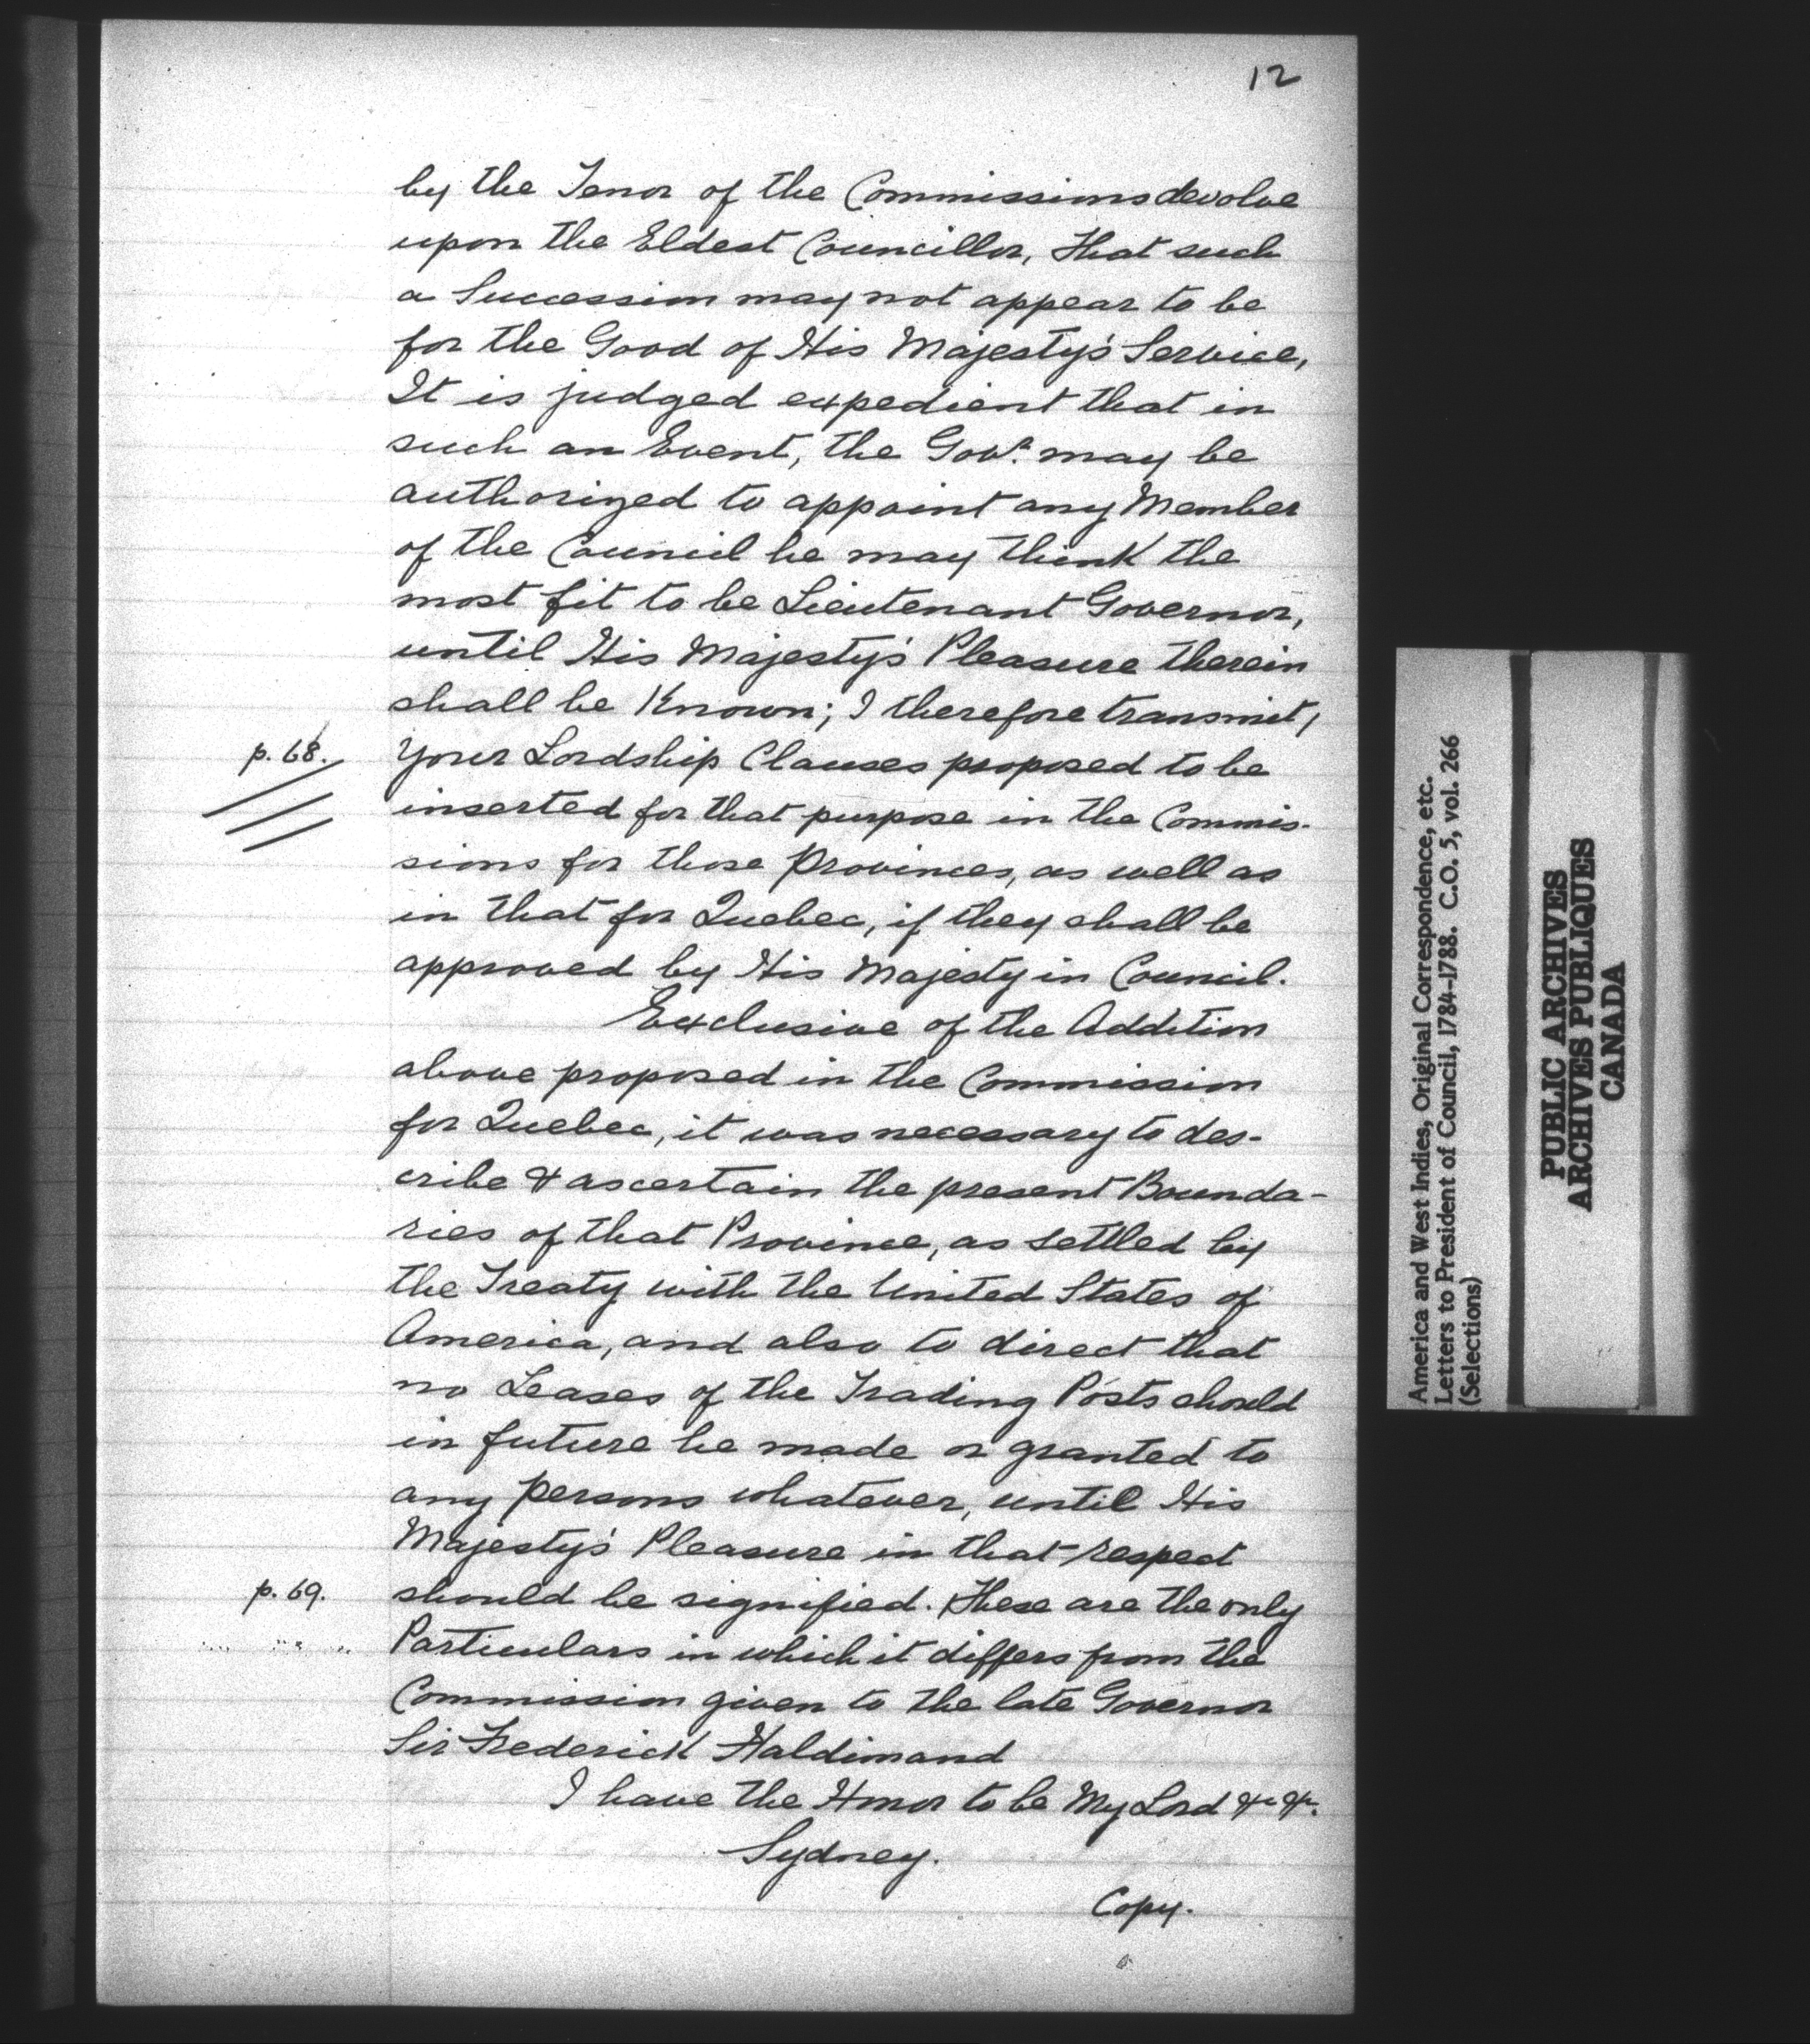 12
by the Tenor of the Commissions devolve
upon the Eldest Councillor, that such
a Succession may not appear to be
for the Good of His Majesty's Service,
It is judged expedient that in
such an Event, the Govr. may be
authorized to appoint any Member
of the Council he may think the
most fit to be Lieutenant Governor,
until His Majesty's Pleasure therein
shall be Known; I therefore transmit,
p. 68. Your Lordship Clauses proposed to be
inserted for that purpose in the Commis-
sions for those Provinces, as well as
in that for Quebec, if they shall be
approved by His Majesty in Council.
Exclusive of the Addition
above proposed in the Commission
for Quebec, it was necessary to des-
cribe & ascertain the present Bounda-
ries of that Province, as settled by
the Treaty with the United States of
America, and also to direct that
no Leases of the Trading Posts should
in future be made or granted to
any persons whatever, until His
Majesty's Pleasure in that respect
p. 69. should be signified. These are the only
Particulars in which it differs from the
Commission given to the late Governor
Sir Frederick Haldimand
I have the Honor to be My Lord &c &c.
Sydney.
Copy.
America and West Indies, Original Correspondence, etc.
Letters to President of Council, 1784-1788. C.O. 5, vol. 266
(Selections)
PUBLIC ARCHIVES
ARCHIVES PUBLIQUES
CANADA